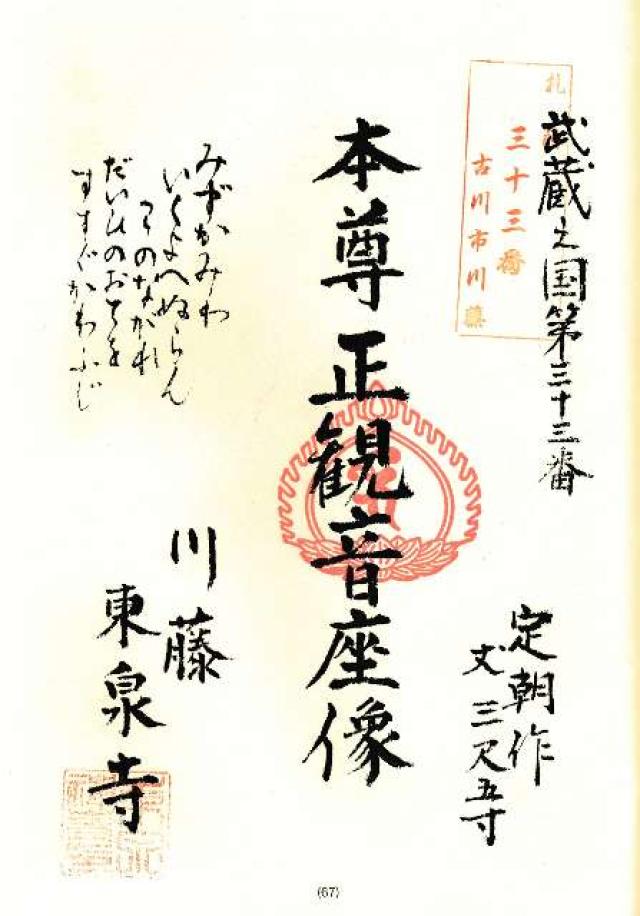 武蔵之国第三十三番
札
三十三番
吉川市川藤
定朝作
丈三尺五寸
本尊正観音座像
みずかみわ
いくよへぬらん
このながれ
だいひのおてを
すすぐかわふじ
川藤
東泉寺
(67)